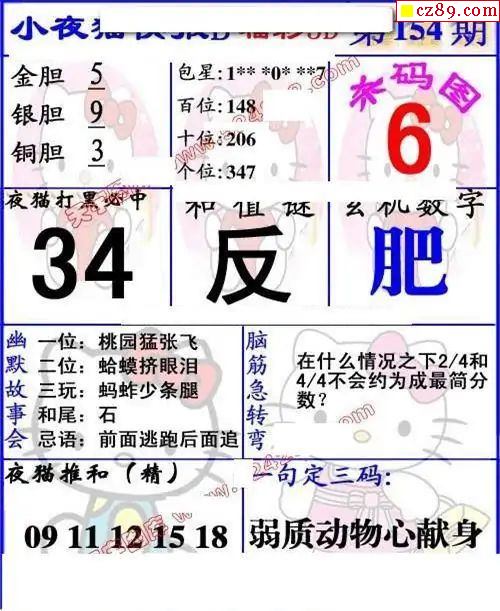 cz89.com
小夜猫 福彩3D 第154期
金胆 5
银胆 9
铜胆 3
包星:1** *0* **7
百位:148
十位:206
个位:347
杀码图
6
夜猫打黑必中
34
和值谜
反
玄机数字
肥
幽默故事会
一位:桃园猛张飞
二位:蛤蟆挤眼泪
三玩:蚂蚱少条腿
和尾:石
忌语:前面逃跑后面追
脑筋急转弯
在什么情况之下2/4和
4/4不会约为成最简分
数?
夜猫推和(精)
09 11 12 15 18
一句定三码:
弱质动物心献身